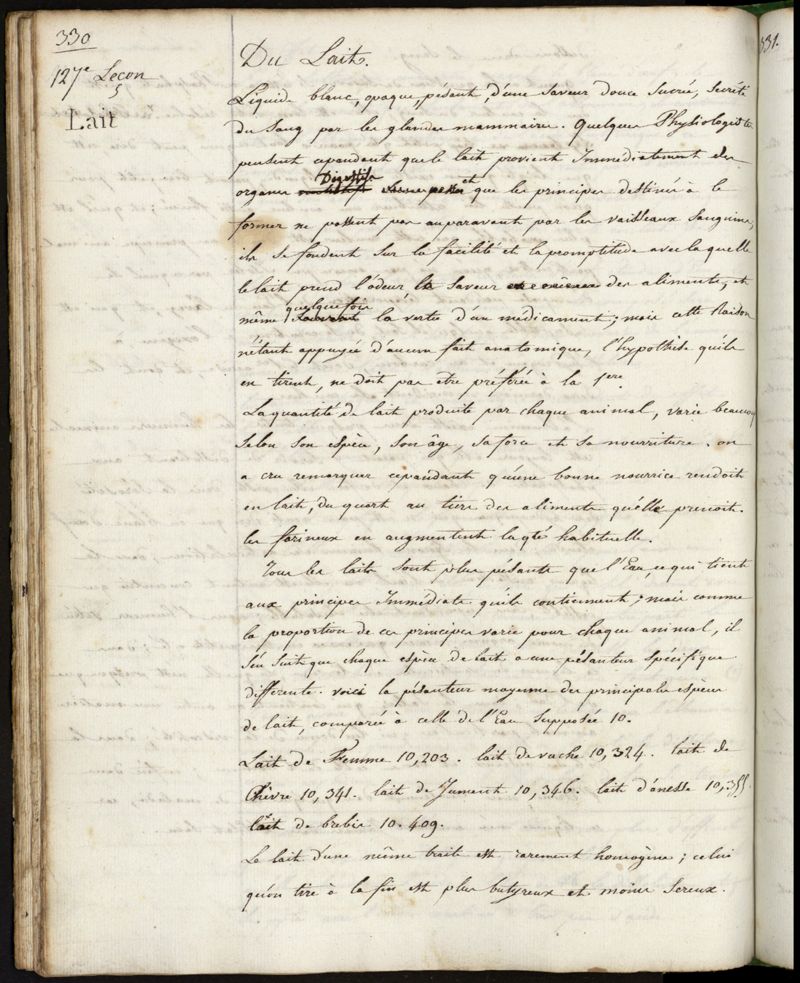 330
127e Leçon
Lait
Du Lait.
Liquide blanc, opaque, pésant, d'une saveur douce sucrée, secrété
du sang par les glandes mammaires. Quelques Physiologistes
pensent cependant que le lait provient Immédiatement des
organes Digestifs et que les principes destinés à le
former ne passent pas auparavant par les vaisseaux sanguins,
ils se fondent sur la facilité et la promptitude avec laquelle
le lait prend l'odeur, la saveur des aliments, et
même quelquefois la vertu d'un médicament; mais cette Raison
n'étant appuyée d'aucun fait anatomique, l'hypothèse qu'ils
en tirent, ne doit pas être préférée à la 1ere.
La quantité de lait produite par chaque animal, varie beaucoup
selon son espèce, son âge, sa force et sa nourriture. on
a cru remarquer cependant qu'une bonne nourrice rendoit
en lait, du quart au tiers des aliments qu'elle prenoit.
les farineux en augmentent la qté habituelle.
Tous les laits sont plus pésants que l'Eau, ce qui tient
aux principes Immédiats qu'ils contiennent; mais comme
la proportion de ces principes varie pour chaque animal, il
s'en suit que chaque espèce de lait a une pésanteur spécifique
differente. voici la pésanteur moyenne des principales espèces
de lait, comparée à celle de l'Eau supposée 10.
Lait de Femme 10,203. lait de vache 10,324. lait de
Chèvre 10,341. lait de Jument 10,346. lait d'ânesse 10,355.
lait de brebis 10.409.
Le lait d'une même traite est rarement homogène; celui
qu'on tire à la fin est plus butyreux et moins sereux.
331.